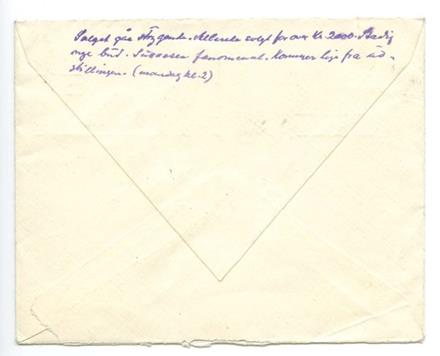 Salget går strygende. Allerede solgt for over Kr. 2000. Stadig
nye bud. Succesen fenomenal. Kommer lige fra ud-
stillingen. (mandag kl. 2)